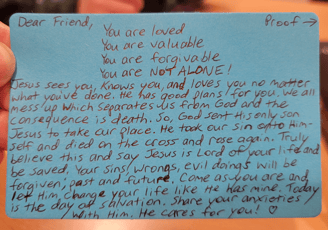 Dear Friend, Proof →
You are loved
You are valuable
You are forgivable
You are NOT ALONE!
Jesus sees you, knows you, and loves you no matter
what you've done. He has good plans for you. We all
mess up which separates us from God and the
consequence is death. So, God sent His only son
Jesus to take our place. He took our sin onto Him-
self and died on the cross and rose again. Truly
believe this and say Jesus is Lord of your life and
be saved. Your sins, wrongs, evil doings will be
forgiven; past and future. Come as you are and
let Him change your life like He has mine. Today
is the day of salvation. Share your anxieties
with Him. He cares for you! ♡